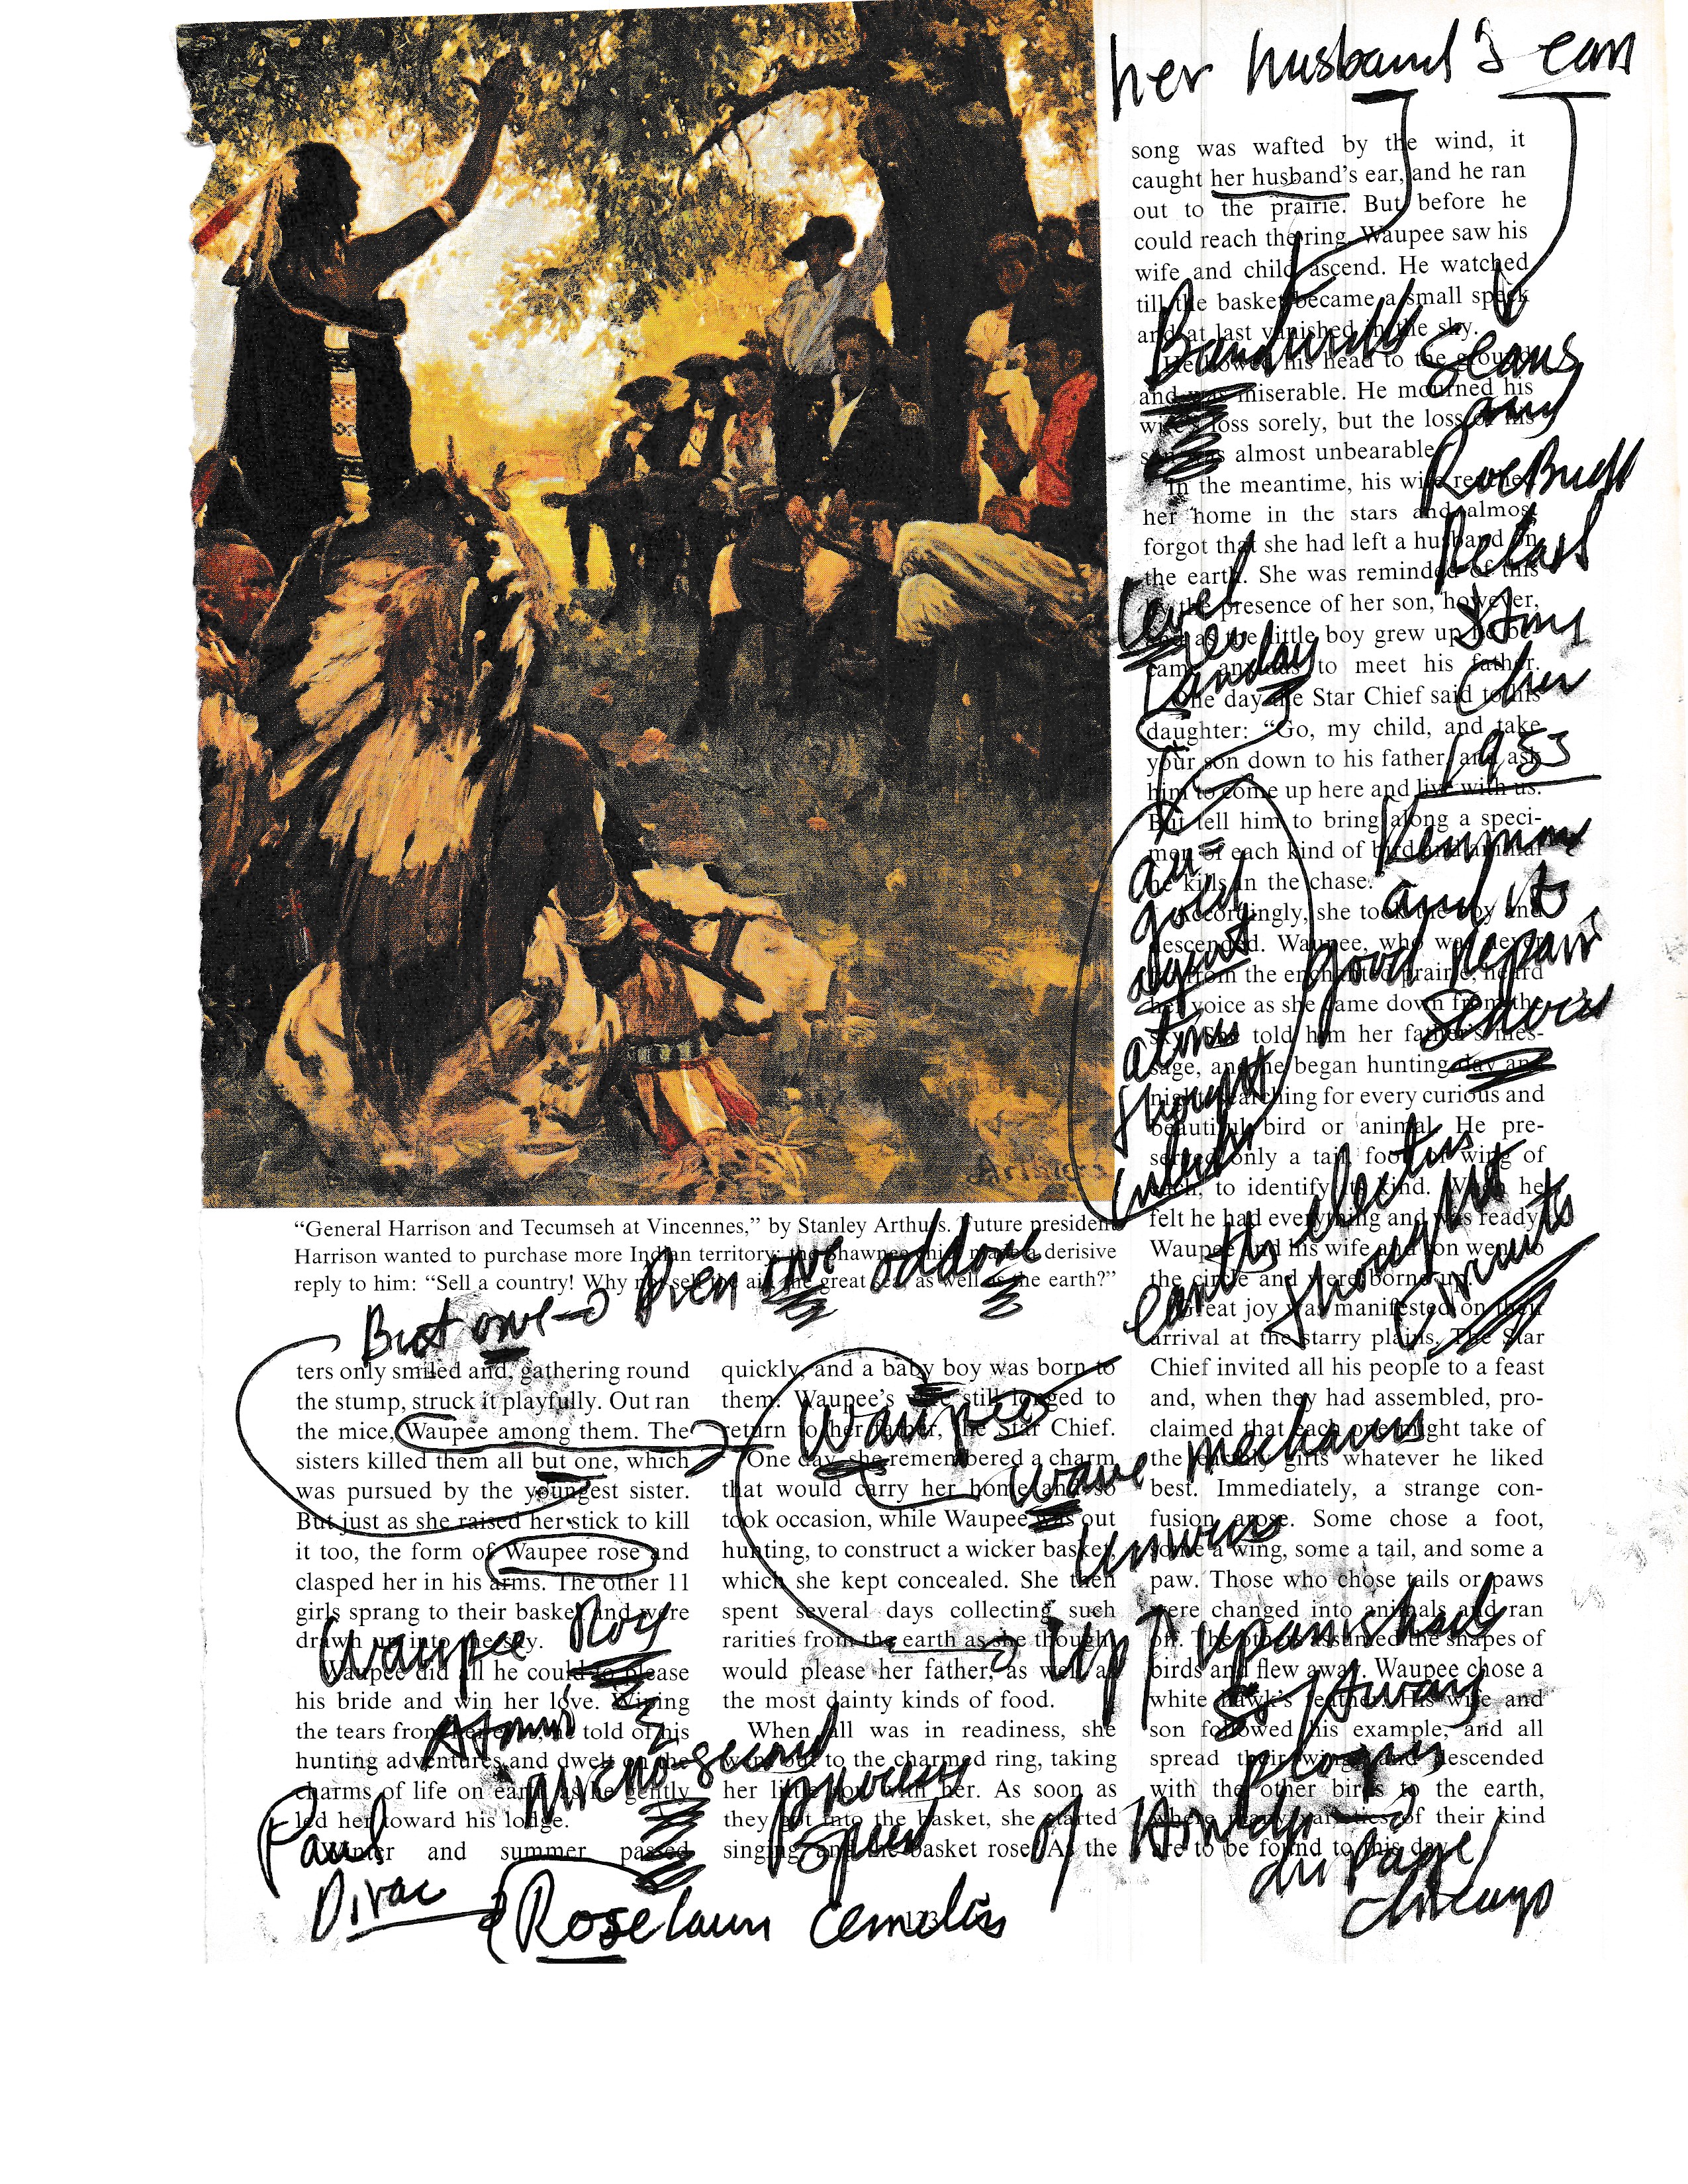 her husband's ears
song was wafted by the wind, it
caught her husband's ear, and he ran
out to the prairie. But before he
could reach the ring, Waupee saw his
wife and child ascend. He watched
till the basket became a small speck
and at last vanished in the sky.
He bowed his head to the ground
and was miserable. He mourned his
wife's loss sorely, but the loss of his
son was almost unbearable.
In the meantime, his wife reached
her home in the stars and almost
forgot that she had left a husband on
the earth. She was reminded of this
by the presence of her son, however,
and as the little boy grew up he be-
came anxious to meet his father.
One day the Star Chief said to his
daughter: "Go, my child, and take
your son down to his father, and ask
him to come up here and live with us.
But tell him to bring along a speci-
men of each kind of bird and animal
he kills in the chase."
Accordingly, she took the boy and
descended. Waupee, who was never
far from the enchanted prairie, heard
her voice as she came down from the
sky. She told him her father's mes-
sage, and he began hunting day and
night, searching for every curious and
beautiful bird or animal. He pre-
served only a tail, foot or wing of
each, to identify its kind. When he
felt he had everything and was ready,
Waupee and his wife and son went to
the circle and were borne up.
Great joy was manifested on their
arrival at the starry plains. The Star
Chief invited all his people to a feast
and, when they had assembled, pro-
claimed that each one might take of
the earthly gifts whatever he liked
best. Immediately, a strange con-
fusion arose. Some chose a foot,
some a wing, some a tail, and some a
paw. Those who chose tails or paws
were changed into animals and ran
off. The others assumed the shapes of
birds and flew away. Waupee chose a
white hawk's feather. His wife and
son followed his example, and all
spread their wings and descended
with the other birds to the earth,
where many varieties of their kind
are to be found to this day.
Sears
and
RoeBuck
1953
and its
good repair
gold
earths electric
thought
circuits
"General Harrison and Tecumseh at Vincennes," by Stanley Arthurs. Future president
Harrison wanted to purchase more Indian territory; the Shawnee chief made a derisive
reply to him: "Sell a country! Why not sell the air, the great sea, as well as the earth?"
But one
one odd one
ters only smiled and, gathering round
the stump, struck it playfully. Out ran
the mice, Waupee among them. The
sisters killed them all but one, which
was pursued by the youngest sister.
But just as she raised her stick to kill
it too, the form of Waupee rose and
clasped her in his arms. The other 11
girls sprang to their basket and were
drawn up into the sky.
Waupee did all he could to please
his bride and win her love. Wiping
the tears from her eyes, he told of his
hunting adventures and dwelt on the
charms of life on earth, as he gently
led her toward his lodge.
Winter and summer passed
quickly, and a baby boy was born to
them. Waupee's wife still longed to
return to her father, the Star Chief.
One day she remembered a charm
that would carry her home and so
took occasion, while Waupee was out
hunting, to construct a wicker basket,
which she kept concealed. She then
spent several days collecting such
rarities from the earth as she thought
would please her father, as well as
the most dainty kinds of food.
When all was in readiness, she
went out to the charmed ring, taking
her little boy with her. As soon as
they got into the basket, she started
singing, and the basket rose. As the
Waupee
wave mechanics
Waupee Roy
Micro-second
process
speed of
Paul
Dirac
Roselawn
Chicago